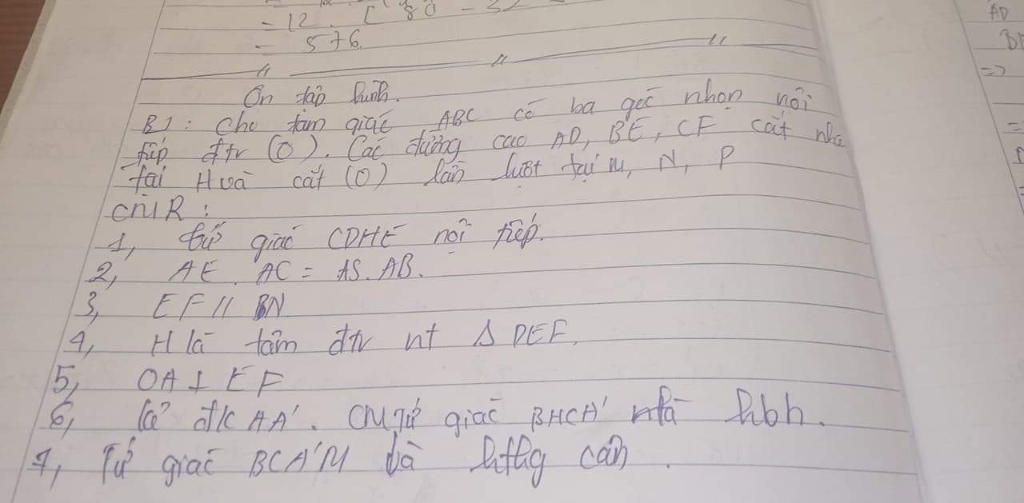 = 12 . [ 80 - 32
= 576.
Ôn tập hình.
B1 : Cho tam giác ABC có ba góc nhọn nội
tiếp đtr (O). Các đường cao AD, BE, CF cắt nha
tại H và cắt (O) lần lượt tại M, N, P
CMR :
1, tứ giác CDHE nội tiếp.
2, AE. AC = AS. AB.
3, EF // BN
4, H là tâm đtr nt Δ DEF.
5, OA ⊥ EF
6, kẻ đk AA'. CM tứ giác BHCA' là hbh.
7, Tứ giác BCA'M là hthg cân.
AD
=>
=